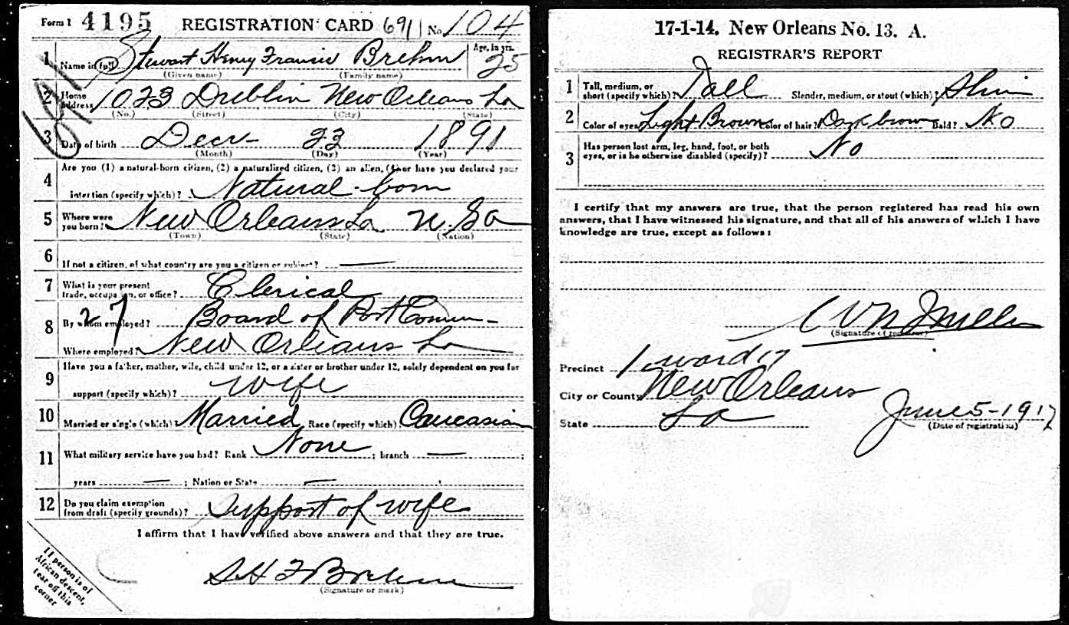 Form 1 4195 REGISTRATION CARD 6911 No. 104
1 Name in full Stewart Henry Francis Brehm Age, in yrs. 25
(Given name) (Family name)
2 Home address 1023 Dublin New Orleans La
(No.) (Street) (City) (State)
3 Date of birth Decr 23 1891
(Month) (Day) (Year)
4 Are you (1) a natural-born citizen, (2) a naturalized citizen, (3) an alien, (4) or have you declared your
intention (specify which)? Natural-born
5 Where were you born? New Orleans La
(Town) (State) (Nation)
6 If not a citizen, of what country are you a citizen or subject? —
7 What is your present trade, occupation, or office? Clerical
27
8 By whom employed? Board of Port Comm—
Where employed? New Orleans La
9 Have you a father, mother, wife, child under 12, or a sister or brother under 12, solely dependent on you for
support (specify which)? wife
10 Married or single (which) Married Race (specify which) Caucasian
11 What military service have you had? Rank None ; branch — ;
years — ; Nation or State —
12 Do you claim exemption from draft (specify grounds)? Support of wife
I affirm that I have verified above answers and that they are true.
S H F Brehm
(Signature or mark)
If person is of African descent, tear off this corner
17-1-14. New Orleans No. 13. A.
REGISTRAR'S REPORT
1 Tall, medium, or short (specify which)? Tall Slender, medium, or stout (which)? Slim
2 Color of eyes? Light Brown Color of hair? Dark brown Bald? No
3 Has person lost arm, leg, hand, foot, or both eyes, or is he otherwise disabled (specify)? No
I certify that my answers are true, that the person registered has read his own
answers, that I have witnessed his signature, and that all of his answers of which I have
knowledge are true, except as follows:
(Signature of registrar)
Precinct 1 ward 17
City or County New Orleans
State La June 5-1917
(Date of registration)